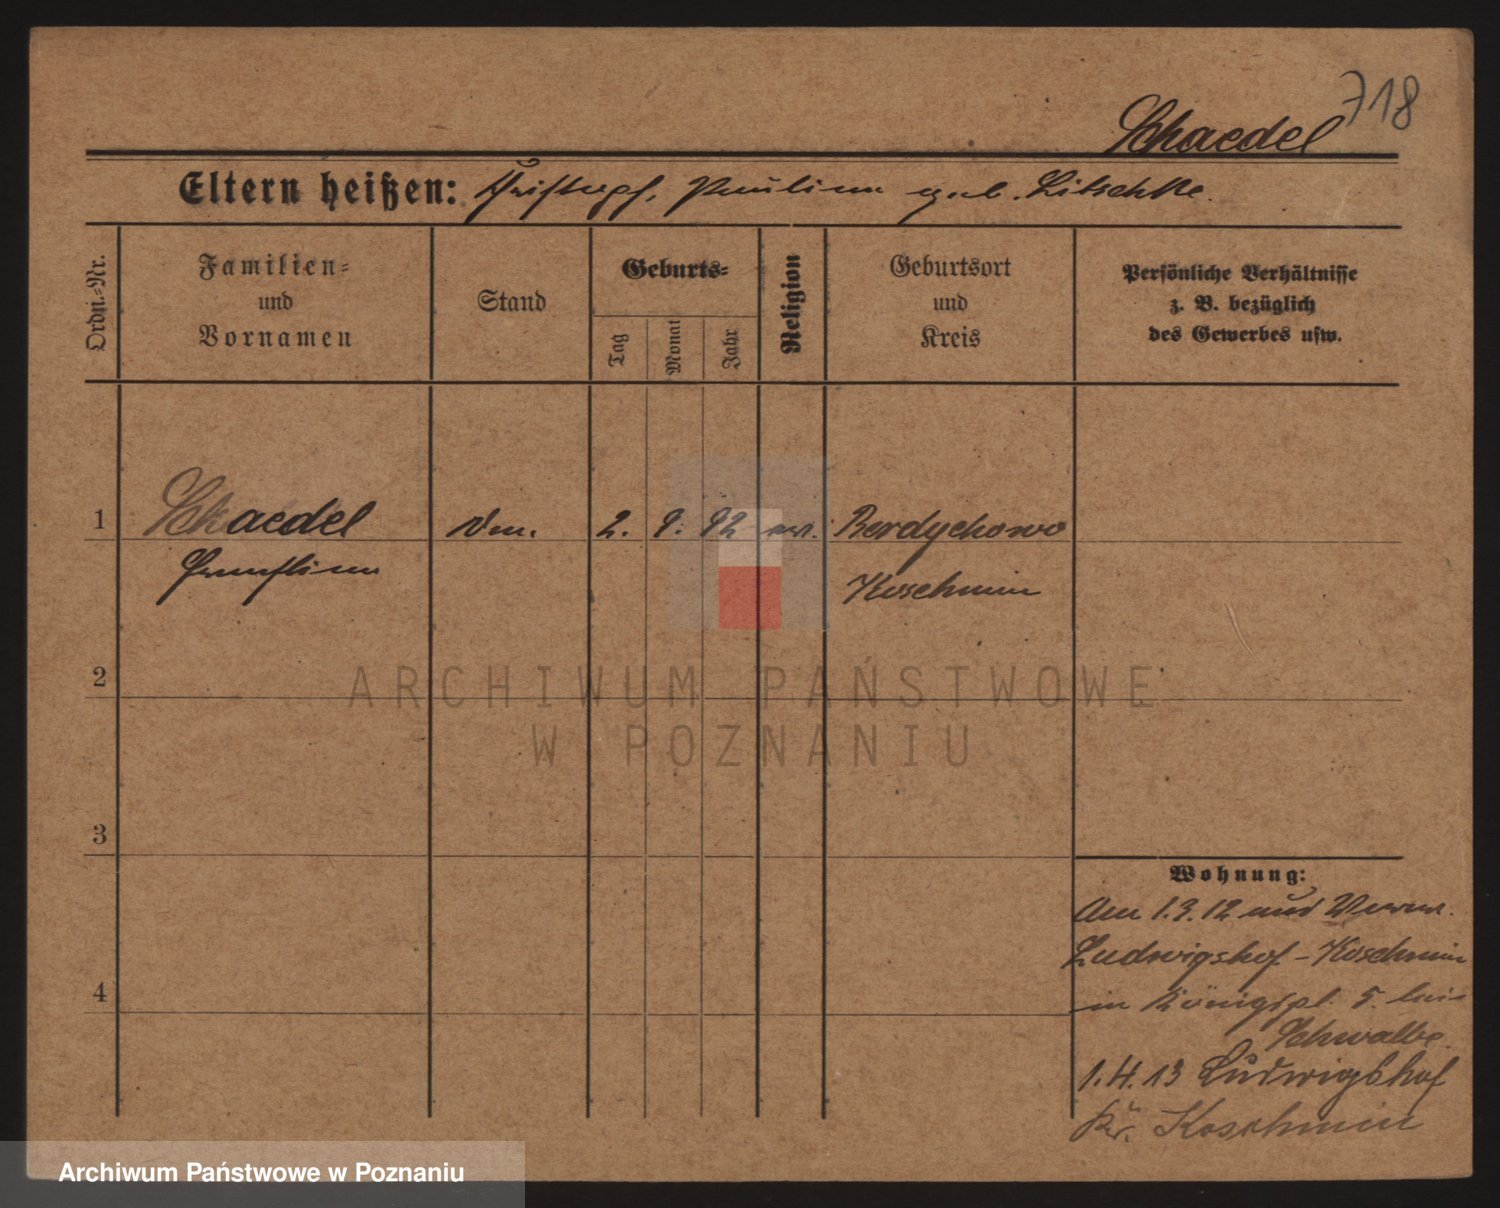 718
Schaedel
Eltern heißen: Christoph, Pauline geb. Litschke.
Ordn.-Nr.
Familien-
und
Vornamen
Stand
Geburts-
Tag
Monat
Jahr
Religion
Geburtsort
und
Kreis
Persönliche Verhältnisse
z. B. bezüglich
des Gewerbes usw.
1
Schaedel
2. 9. 92
Berdychowo
Koschmin
2
3
4
ARCHIWUM PAŃSTWOWE
W POZNANIU
Wohnung:
Am 1.3.12 aus
Ludwigshof - Koschmin
in Königspl. 5. bei
Schwalbe.
1.4.13 Ludwigshof
Kr. Koschmin
Archiwum Państwowe w Poznaniu